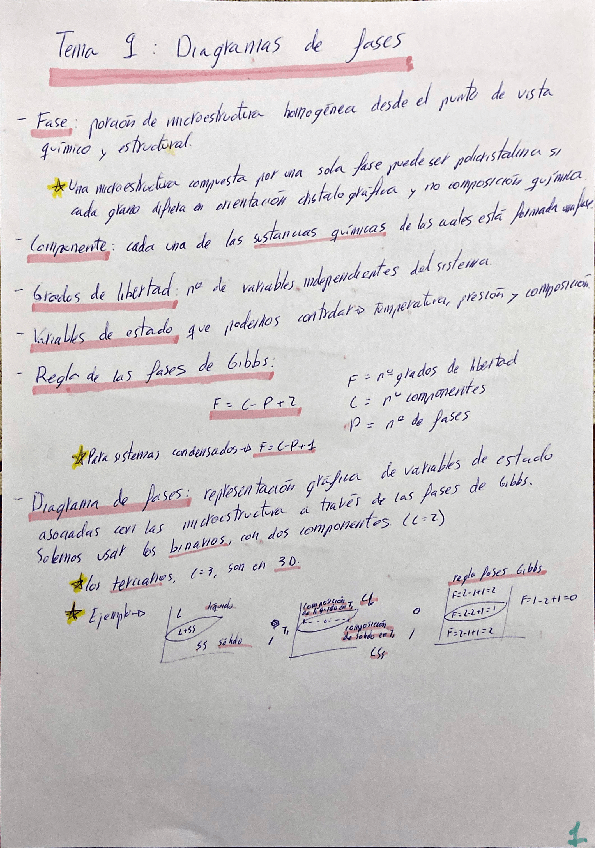 Tema 9: Diagramas de fases
- Fase: porción de microestructura homogénea desde el punto de vista
químico y estructural.
★ Una microestructura compuesta por una sola fase puede ser policristalina si
cada grano difiera en orientación cristalográfica y no composición química
- Componente: cada una de las sustancias químicas de las cuales está formada una fase
- Grados de libertad: nº de variables independientes del sistema
- Variables de estado que podemos controlar → Temperatura, presión y composición
- Regla de las fases de Gibbs:
F = C - P + 2
F = nº grados de libertad
C = nº componentes
P = nº de fases
★ Para sistemas condensados → F = C - P + 1
- Diagrama de fases: representación gráfica de variables de estado
asociadas con las microestructura a través de las fases de Gibbs.
Solemos usar los binarios, con dos componentes (C=2)
★ Los ternarios, C=3, son en 3D.
★ Ejemplo →
L líquido
L+SS
SS sólido
T₁
composición
CL
composición
de sólido en T₁
CSS
o
regla fases Gibbs
F=2-1+1=2
F=2-2+1=1
F=2-1+1=2
F=1-2+1=0
1